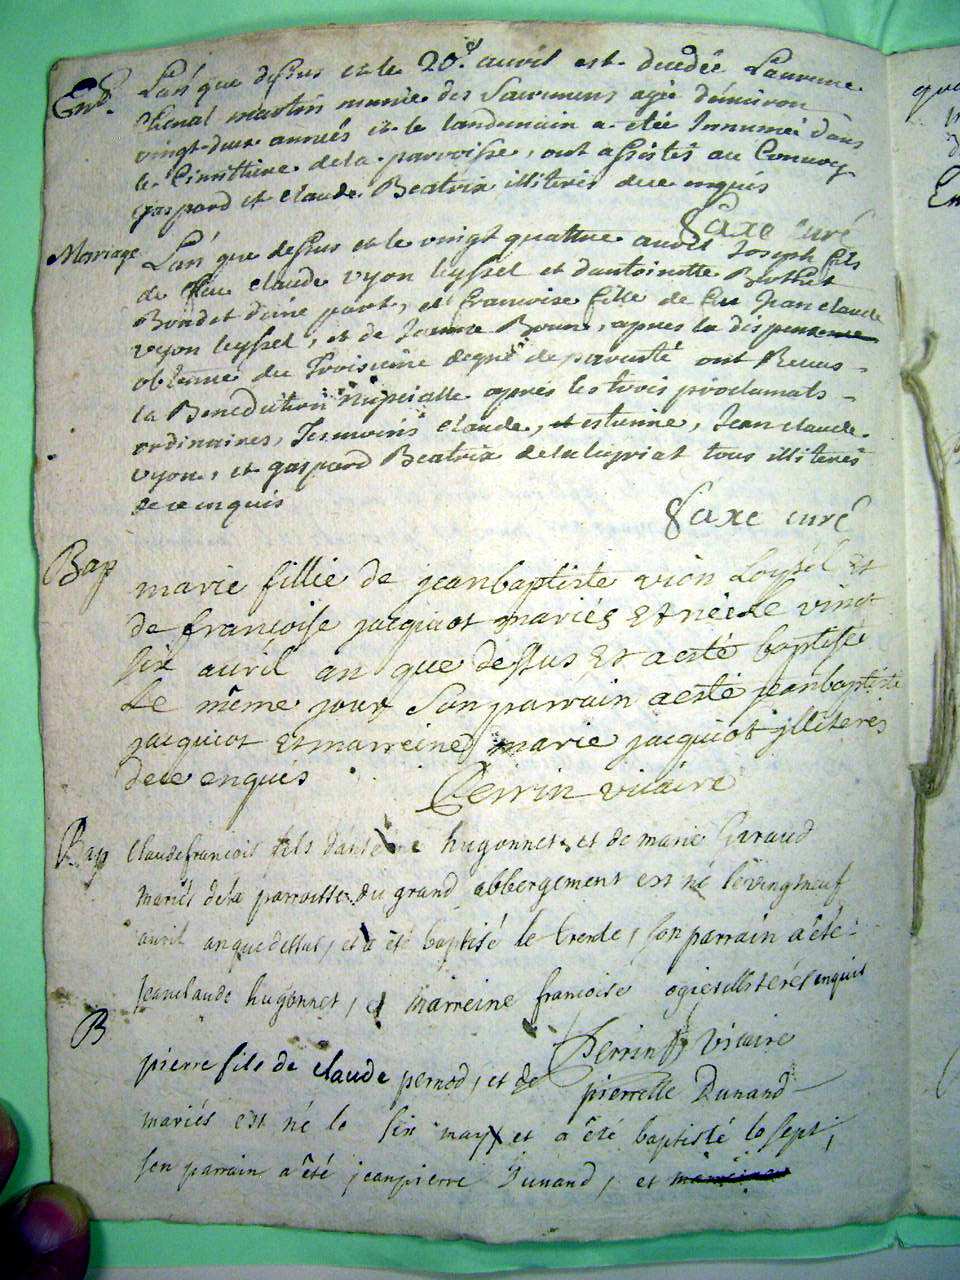 Ent. L'an que dessus et le 20e. auril est decedée Laurence
martin munie des Sacremens agée denuiron
vingt deux années et le landemain a etée Innumée dans
le Cimittiere de la parroisse, ont assistés au Conuoy
gaspard et claude Beatrix illiterés de ce enquis
Saxe curé
Marriage L'an que dessus et le vingt quattre auril Joseph fils
de feu claude vyon leyssel et d'antoinette Brothet
Bondet d'une part, et francoise fille de feu Jean claude
vyon leyssel, et de Jeanne Boune, apres la dispense
obtenue du Troisieme degré de parenté ont Receus
la Benediction Nuptialle apres les trois proclamats
ordinaires, Tesmoins claude, et estienne, Jean claude
vyon, et gaspard Beatrix de la leyriat tous illiterés
de ce enquis
Saxe curé
Bap marie fillie de jeanbaptiste vion Loysel Et
de françoise jacquiot mariés Et néé Le vingt
six auril an que dessus Et a esté baptisé
Le même jour Son parrain a esté jeanbaptiste
jacquiot Et marreine marie jacquiot jlliteres
de ce enquis Perrin vicaire
Bap Claudefrancois fils d'antoine hugonnet, et de marie Giraud
mariés de la parroisse du grand abbergement est né le vingtneuf
auril an que dessus, et a été baptisé le trente, son parrain a été
Jeanclaude hugonnet, et marreine francoise ogier illiterés enquis
Perrin Vicaire
B pierre fils de claude pernod, et de pierrette Dunand
mariés est né le six may et a été baptisé le sept,
son parrain a été jeanpierre Dunand, et marreine